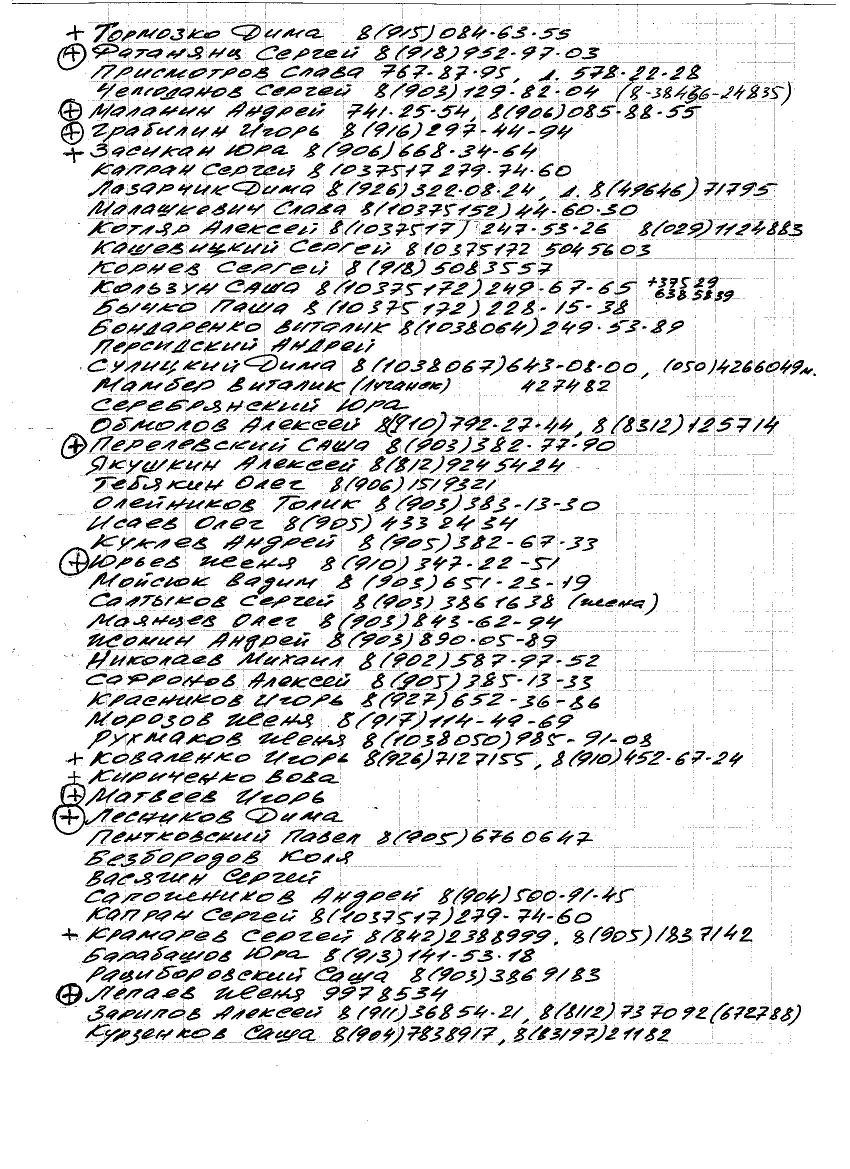 + Тормозко Дима 8(915)084-63-55
⊕ Фатанянц Сергей 8(918)952-97-03
Присмотров Слава 767-87-95, д. 578-22-28
Чемоданов Сергей 8(903)129-82-04 (8-38466-24835)
⊕ Маланин Андрей 741-25-54, 8(906)085-88-55
⊕ Грабилин Игорь 8(916)297-44-94
+ Засикан Юра 8(906)668-34-64
Капран Сергей 8 1037517 279-74-60
Лазарчик Дима 8(926)322-08-24, д. 8(49646)71795
Малашкевич Слава 8(10375152)44-60-30
Котляр Алексей 8(1037517) 247-53-26 8(029)1124883
Кашевицкий Сергей 8 10375172 5045603
Корнев Сергей 8(918)5083557
Кользун Саша 8(10375172)249-67-65 +37529
6385839
Бычко Паша 8(10375172)228-15-38
Бондаренко Виталик 8(1038064)249-53-89
Персидский Андрей
Сулицкий Дима 8(1038067)643-08-00, (050)4266049м.
Мамбер Виталик (Луганск) 427482
Серебрянский Юра
Обмолов Алексей 8(910)792-27-44, 8(8312)125714
⊕ Перелевский Саша 8(903)382-77-90
Якушкин Алексей 8(812)9245424
Тебякин Олег 8(906)1519321
Олейников Толик 8(903)383-13-30
Исаев Олег 8(905) 4332434
Куклев Андрей 8(905)382-67-33
⊕ Юрьев Женя 8(910)347-22-51
Мойсюк Вадим 8(903)651-23-19
Салтыков Сергей 8(903)3861638 (жена)
Маянцев Олег 8(903)843-62-94
Изомин Андрей 8(903)890-05-89
Николаев Михаил 8(902)587-97-52
Сафронов Алексей 8(905)385-13-33
Красников Игорь 8(927)652-36-86
Морозов Женя 8(917)114-49-69
Рухмаков Женя 8(1038050)985-91-08
+ Коваленко Игорь 8(926)7127155, 8(910)452-67-24
+ Кириченко Вова
⊕ Матвеев Игорь
⊕ Лесников Дима
Пентковский Павел 8(905)6760647
Безбородов Коля
Васягин Сергей
Сапожников Андрей 8(904)500-91-45
Капран Сергей 8(1037517)279-74-60
+ Крамарев Сергей 8(842)2388999, 8(905)1837142
Барабашов Юра 8(913)141-53-18
Рациборовский Саша 8(903)3869183
⊕ Лепаев Женя 9978534
Зарипов Алексей 8(911)36854-21, 8(8112)737092(672788)
Курзенков Саша 8(904)7838917, 8(83197)21182